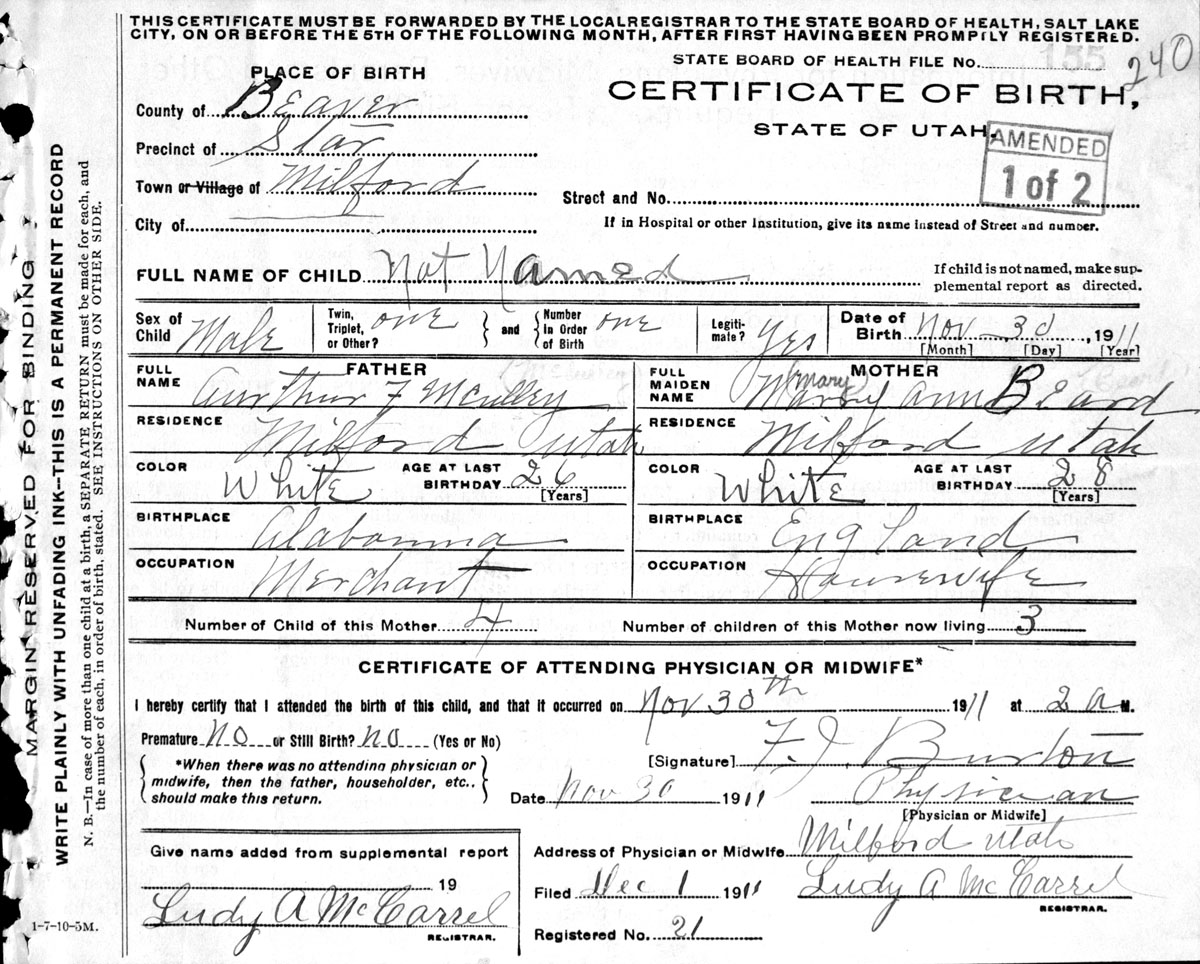 THIS CERTIFICATE MUST BE FORWARDED BY THE LOCAL REGISTRAR TO THE STATE BOARD OF HEALTH, SALT LAKE
CITY, ON OR BEFORE THE 5TH OF THE FOLLOWING MONTH, AFTER FIRST HAVING BEEN PROMPTLY REGISTERED.
STATE BOARD OF HEALTH FILE No. 155 240
PLACE OF BIRTH
CERTIFICATE OF BIRTH,
STATE OF UTAH.
AMENDED
1 of 2
County of Beaver
Precinct of Star
Town or Village of Milford
Street and No.
City of
If in Hospital or other Institution, give its name instead of Street and number.
FULL NAME OF CHILD Not Named
If child is not named, make sup-
plemental report as directed.
Sex of Child Male
Twin, Triplet, or Other? one
and
Number in Order of Birth one
Legiti-mate? Yes
Date of Birth Nov 30, 1911
[Month] [Day] [Year]
FATHER
FULL NAME Aurthur F McCulley
RESIDENCE Milford Utah
COLOR White
AGE AT LAST BIRTHDAY 26
[Years]
BIRTHPLACE Alabamma
OCCUPATION Merchant
MOTHER
FULL MAIDEN NAME (Mary) Ann Beard
RESIDENCE Milford Utah
COLOR White
AGE AT LAST BIRTHDAY 28
[Years]
BIRTHPLACE England
OCCUPATION Housewife
Number of Child of this Mother 4
Number of children of this Mother now living 3
CERTIFICATE OF ATTENDING PHYSICIAN OR MIDWIFE*
I hereby certify that I attended the birth of this child, and that it occurred on Nov 30th 1911 at 2 a M.
Premature No or Still Birth? No (Yes or No)
*When there was no attending physician or
midwife, then the father, householder, etc.,
should make this return.
[Signature] F. J. Burton
Date Nov 30 1911
Physician
[Physician or Midwife]
Give name added from supplemental report
19
Ludy A McCarrel
REGISTRAR.
Address of Physician or Midwife Milford Utah
Filed Dec 1 1911
Ludy A McCarrel
REGISTRAR.
Registered No. 21
1-7-10-5M.
MARGIN RESERVED FOR BINDING
WRITE PLAINLY WITH UNFADING INK--THIS IS A PERMANENT RECORD
N. B.—In case of more than one child at a birth, a SEPARATE RETURN must be made for each, and
the number of each, in order of birth, stated. SEE INSTRUCTIONS ON OTHER SIDE.